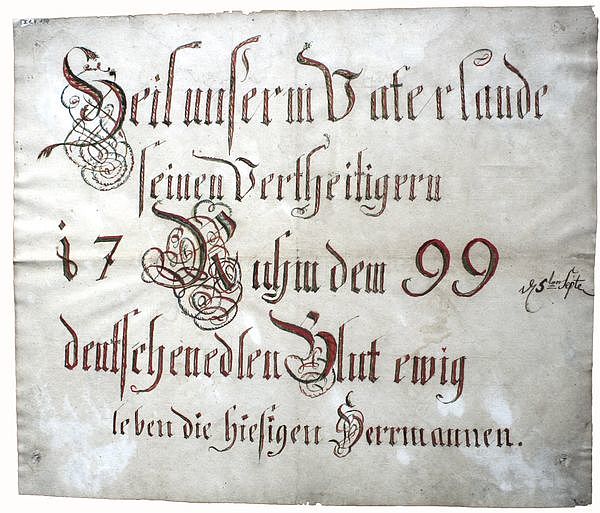 Heil unserm Vaterlande
seinen Vertheitigern
17 Ruhm dem 99
d 5ten Septe
deutschen edlen Blut ewig
leben die hiesigen Herrmannen.